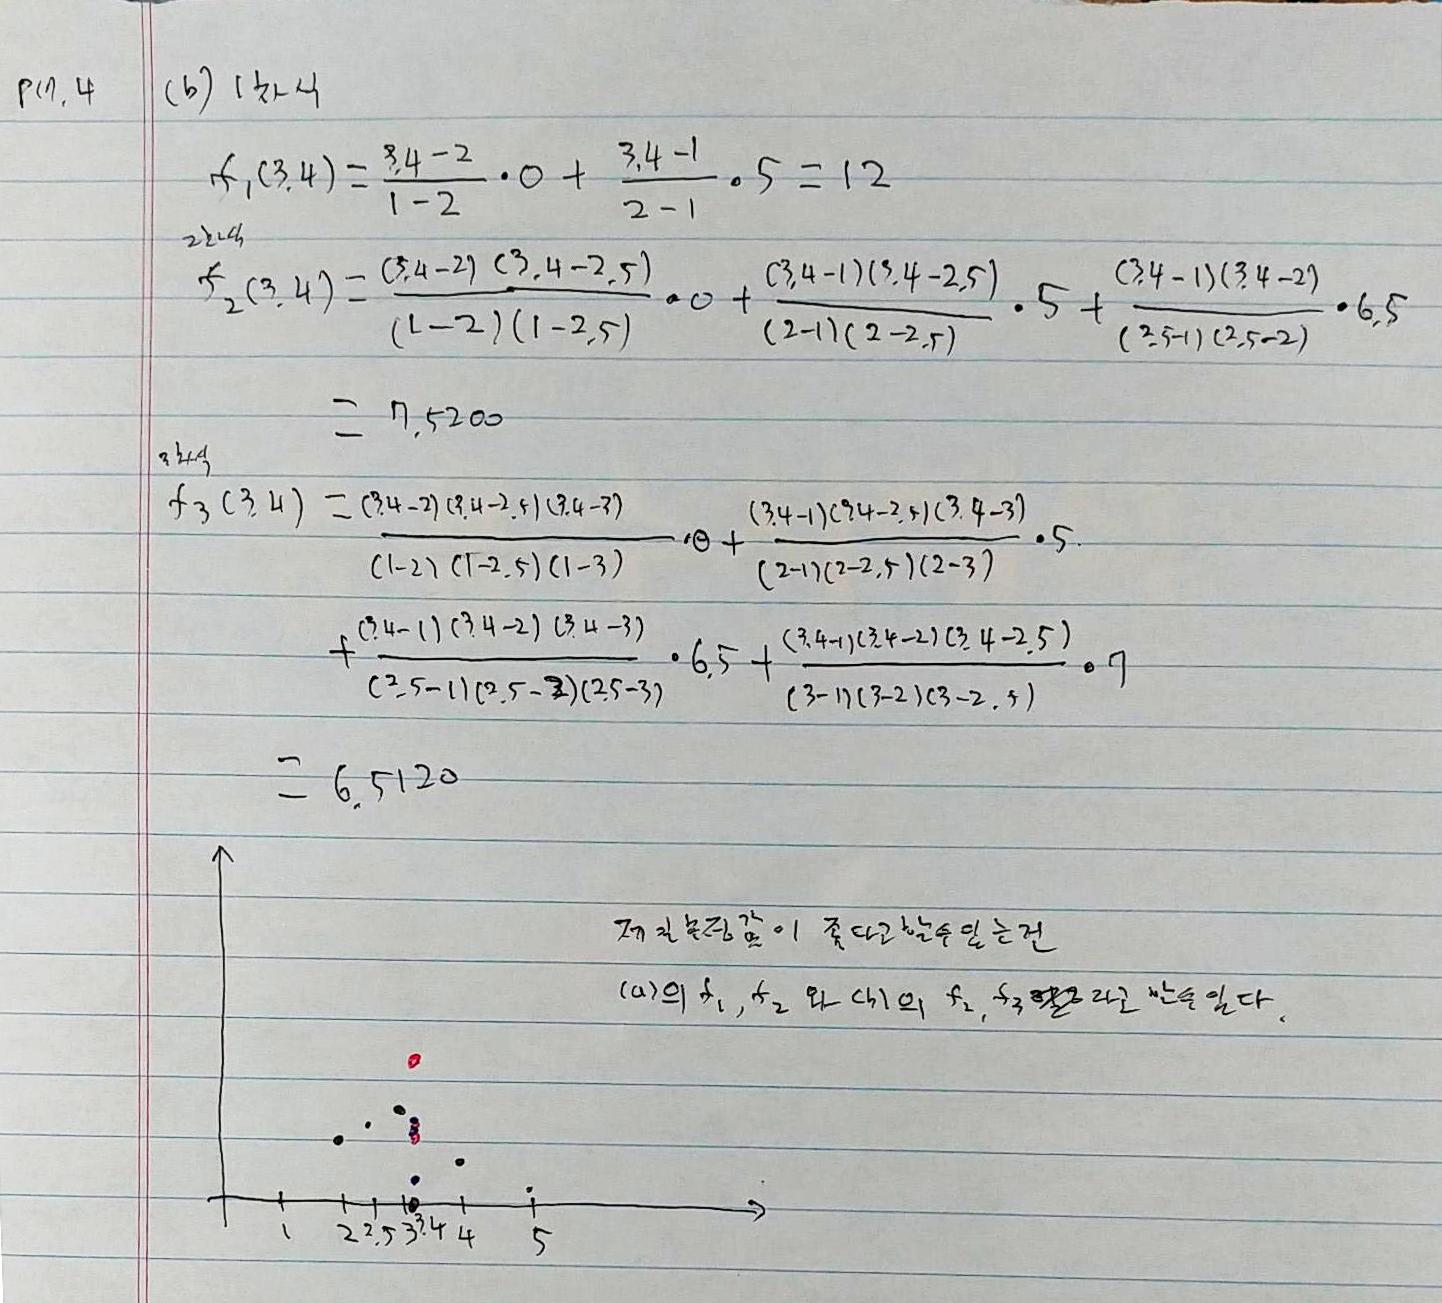 P17.4 (b) 1차식
f₁(3.4) = (3.4-2)/(1-2) · 0 + (3.4-1)/(2-1) · 5 = 12
2차식
f₂(3.4) = (3.4-2)(3.4-2.5)/(1-2)(1-2.5) · 0 + (3.4-1)(3.4-2.5)/(2-1)(2-2.5) · 5 + (3.4-1)(3.4-2)/(2.5-1)(2.5-2) · 6.5
= 7.5200
3차식
f₃(3.4) = (3.4-2)(3.4-2.5)(3.4-3)/(1-2)(1-2.5)(1-3) · 0 + (3.4-1)(3.4-2.5)(3.4-3)/(2-1)(2-2.5)(2-3) · 5
+ (3.4-1)(3.4-2)(3.4-3)/(2.5-1)(2.5-2)(2.5-3) · 6.5 + (3.4-1)(3.4-2)(3.4-2.5)/(3-1)(3-2)(3-2.5) · 7
= 6.5120
제일 추정값이 좋다고 할 수 있는건
(a)의 f₁, f₂ 와 (b)의 f₂, f₃ 라고 할 수 있다.
1 2 2.5 3 3.4 4 5